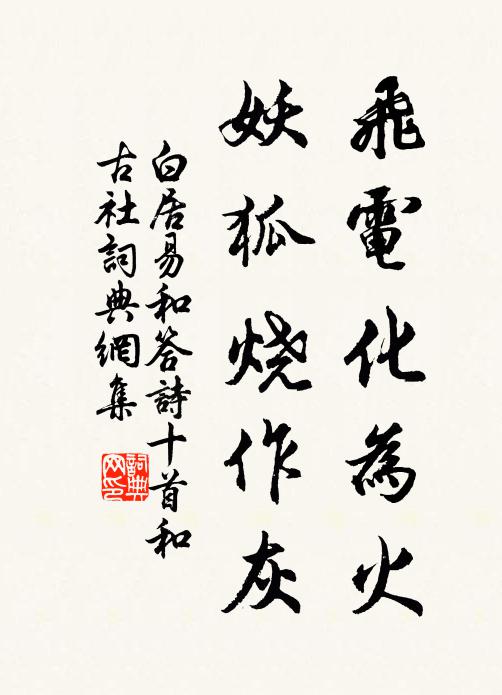 飛電化為火
妖狐烧作灰
白居易和答詩十首和
古社詞典網集
詞典
网印